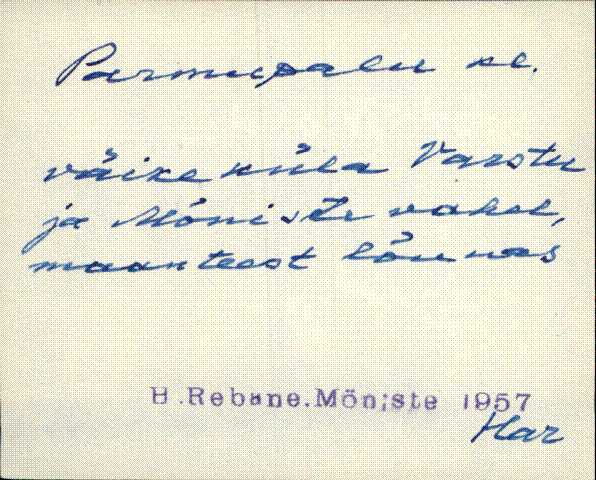 Parmupalu kl.
väike küla Varstu
ja Mõniste vahel,
maanteest lõunas
H.Rebane.Mõniste 1957
Har